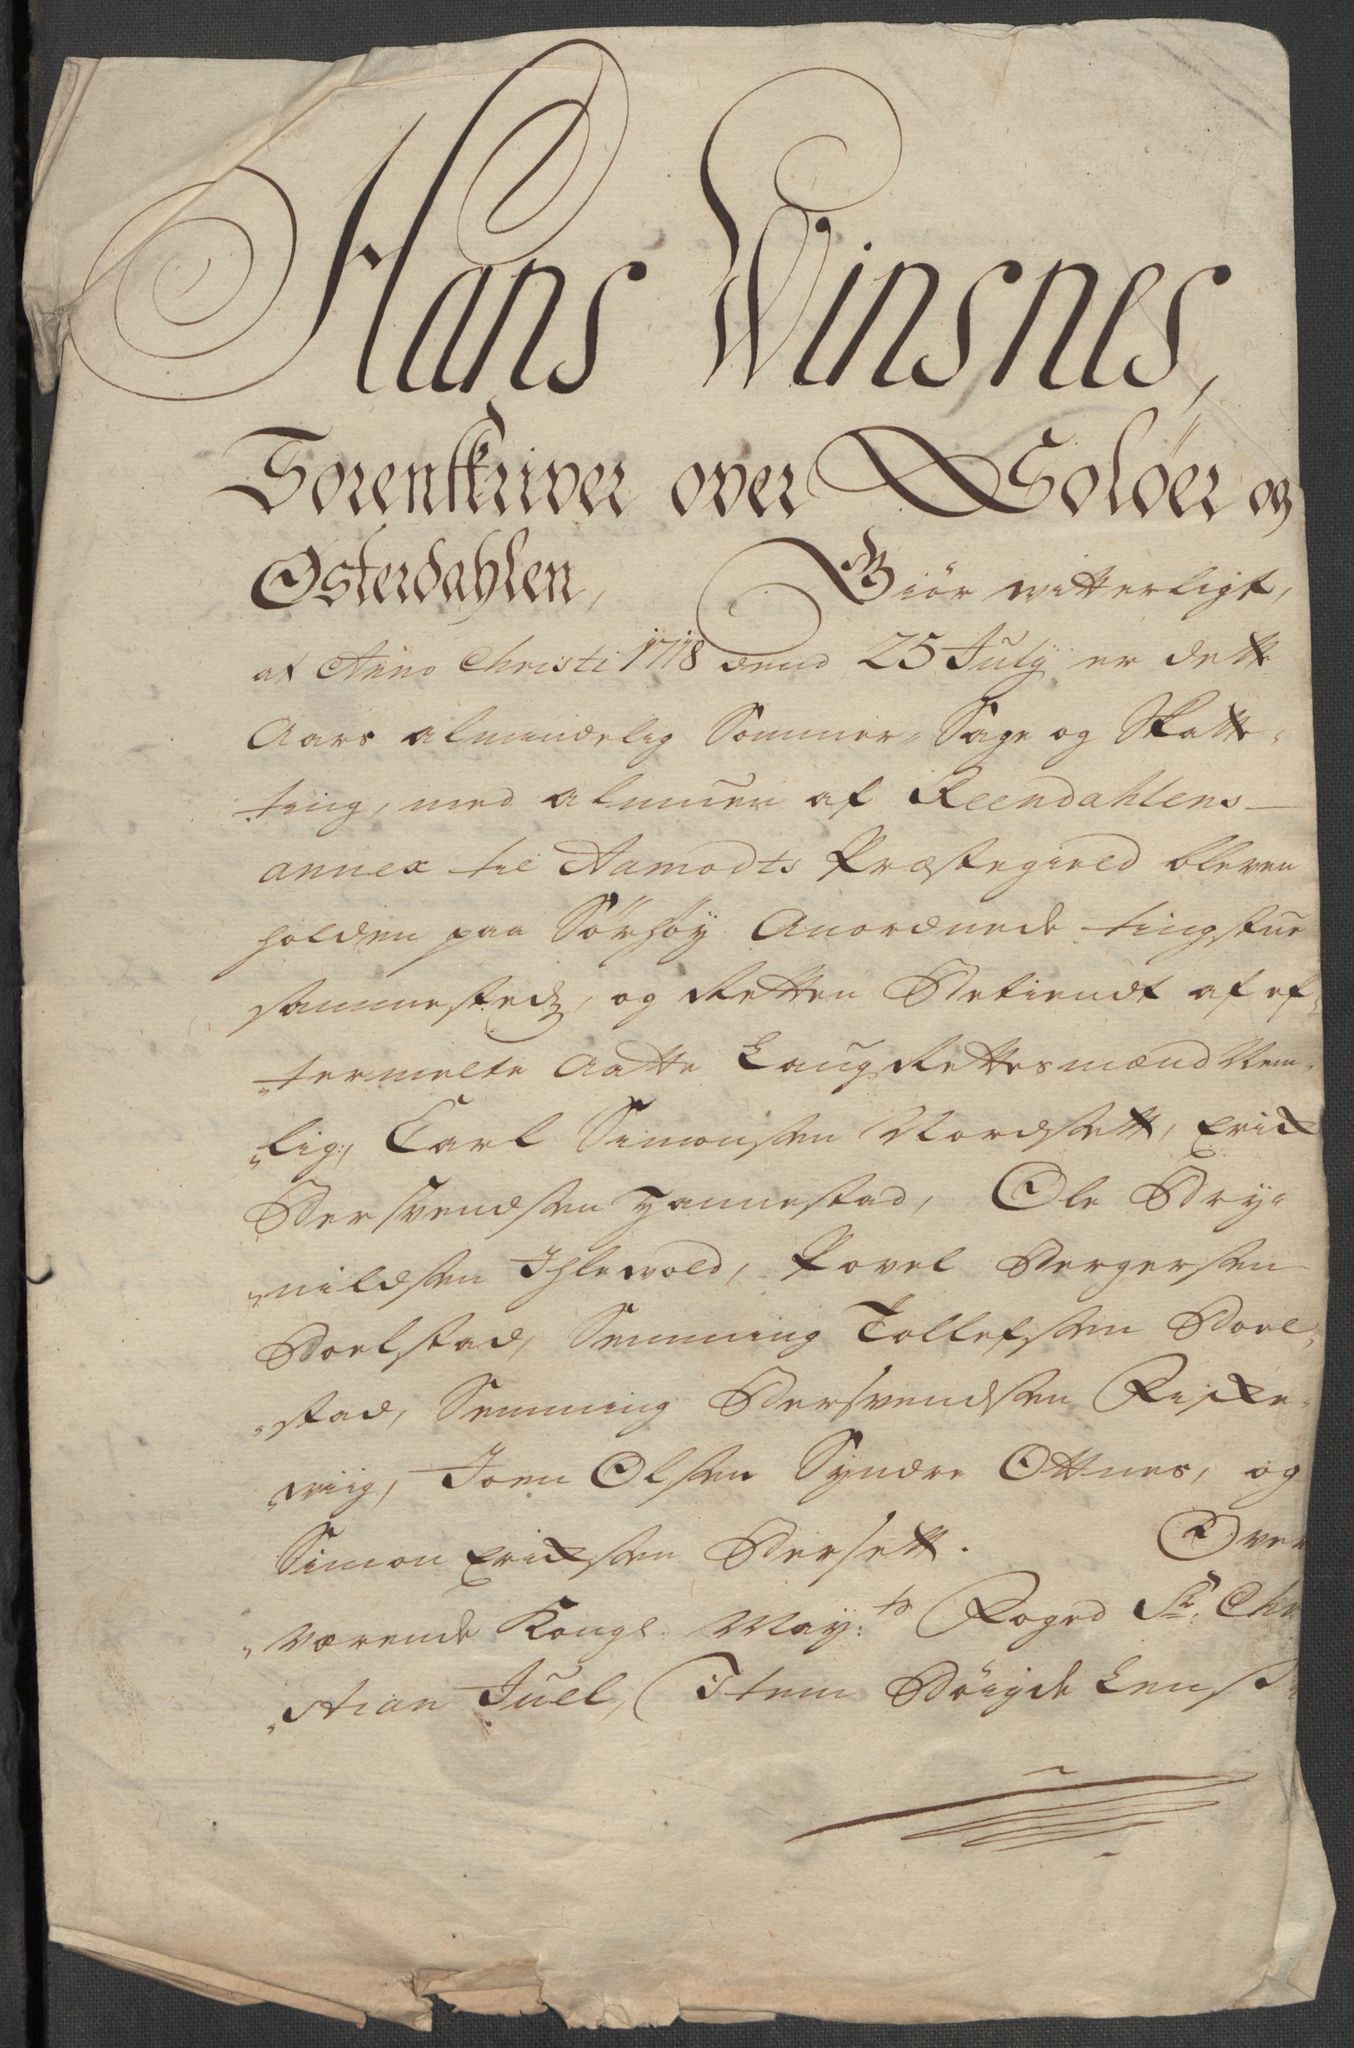 Hans Winsnes,
Sorenskriver over Soløer og
Østerdahlen, Giör witterligt,
at Anno Christi 1718 dend 25 July er dett
Aars almindelig Sommer-Sage og Skatte-
ting, med almuen af Reendahlens
annex til Aamodts Præstegield bleven
holden paa Sörhöy Anordnede tingstue
sammestedz, og Retten Betiendt af ef-
termelte Aatte Laug Rettesmænd Nem-
lig, Carl Simonsen Nordsett, Erich
Bersvendsen Hannestad, Ole Bry-
nildsen Ihlewold, Povel Bergersen
Borlstad, Semming Tollefsen Borl-
stad, Semming Bersvendsen
wiig, Joen Olsen Syndre Ottnes, og
Simon Erichsen Bersett. Over
værende Kongl. May:ts Foged Sr. Chri
stian Juel, Item Böigde Lens